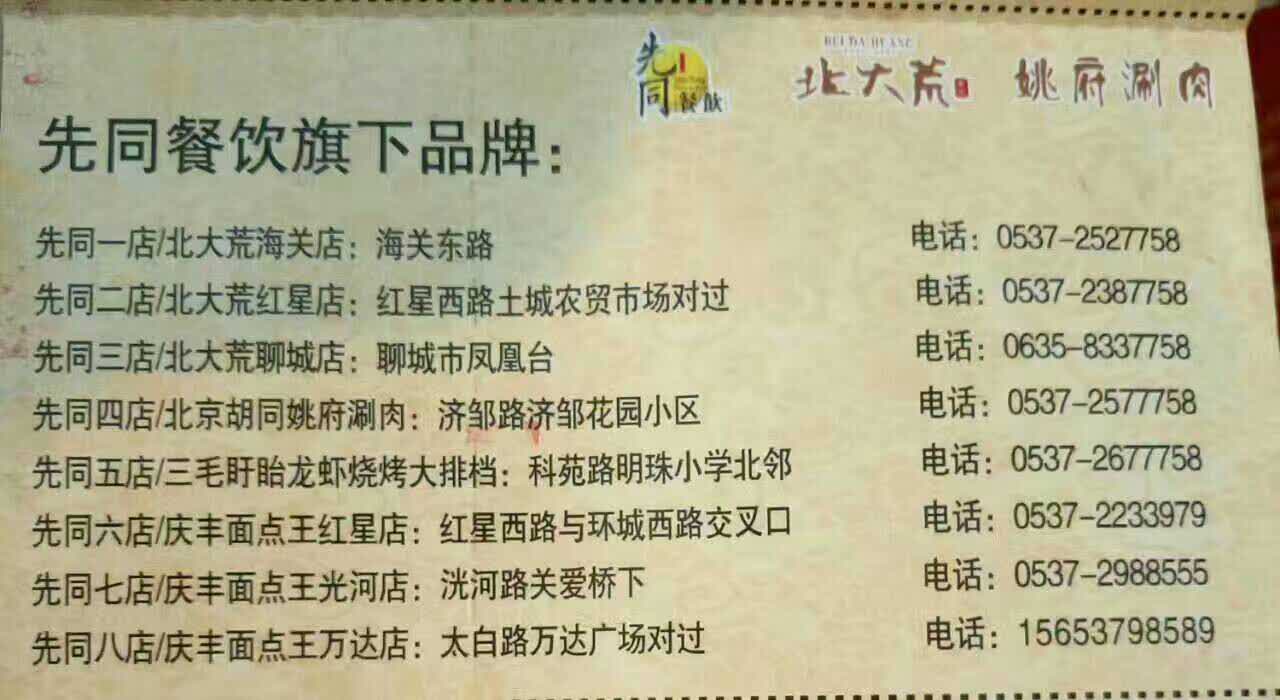 先同餐饮
BEI DA HUANG
北大荒
姚府涮肉
先同餐饮旗下品牌：
先同一店/北大荒海关店：海关东路 电话：0537-2527758
先同二店/北大荒红星店：红星西路土城农贸市场对过 电话：0537-2387758
先同三店/北大荒聊城店：聊城市凤凰台 电话：0635-8337758
先同四店/北京胡同姚府涮肉：济邹路济邹花园小区 电话：0537-2577758
先同五店/三毛盱眙龙虾烧烤大排档：科苑路明珠小学北邻 电话：0537-2677758
先同六店/庆丰面点王红星店：红星西路与环城西路交叉口 电话：0537-2233979
先同七店/庆丰面点王光河店：洸河路关爱桥下 电话：0537-2988555
先同八店/庆丰面点王万达店：太白路万达广场对过 电话：15653798589